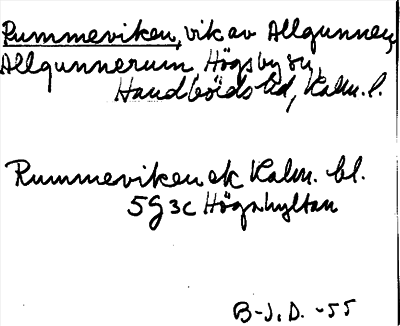 Rummeviken, vik av Allgunnen,
Allgunnerum Högsby sn,
Handbörds hd, Kalm. l.
Rummeviken ek Kalm. bl.
5G3c Högahyltan
B-J. D. -55